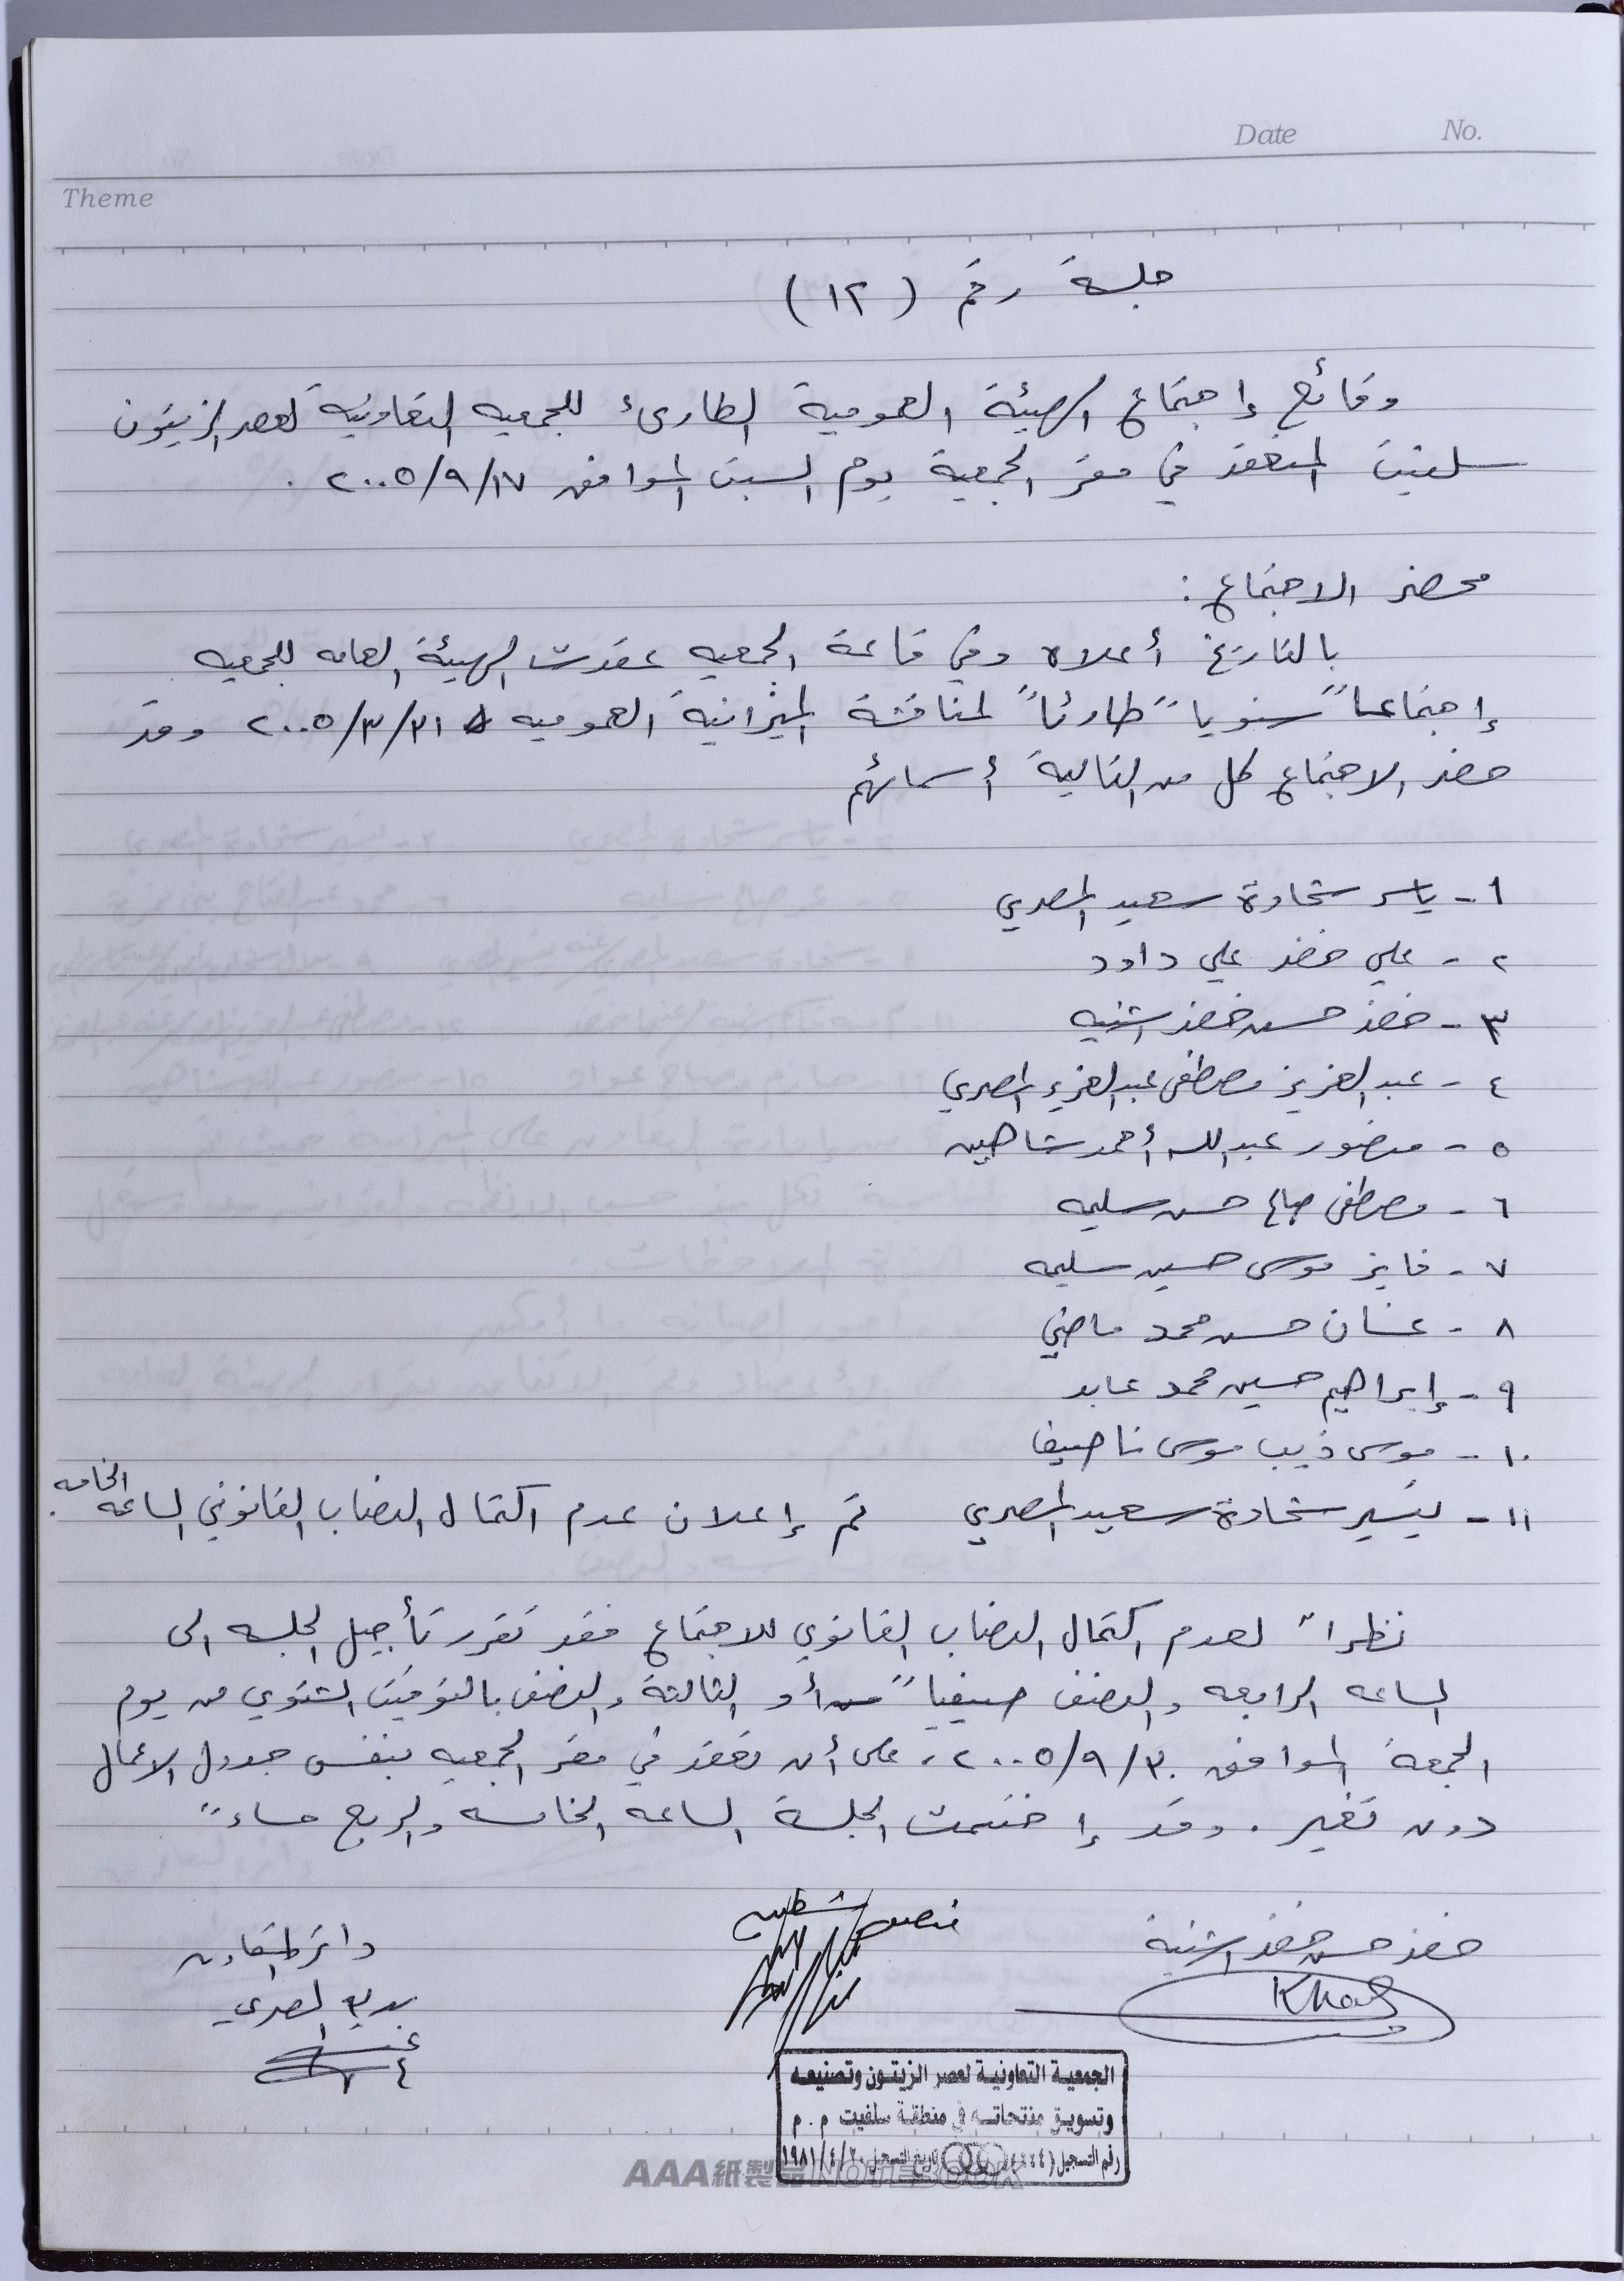 Date No.
Theme
جلسة رقم (١٢)
وقائع إجتماع الهيئة العمومية الطارىء للجمعيه التعاونية لعصر الزيتون
سلفيت المنعقد في مقر الجمعية يوم السبت الموافق ٢٠٠٥/٩/١٧ .
محضر الاجتماع :
بالتاريخ أعلاه وفي قاعة الجمعيه عقدت الهيئة العامه للجمعيه
إجتماعاً سنوياً طارئاً لمناقشة الميزانية العموميه ٢٠٠٥/٣/٣١ وقد
حضر الاجتماع كل من التالية أسمائهم
١- ياسر شحادة سعيد المصري
٢- علي خضر علي داود
٣- خضر حسن خضر اشتيه
٤- عبد العزيز مصطفى عبد العزيز المصري
٥- منصور عبد الله أحمد شاهين
٦- مصطفى صالح حسن سليمه
٧- فايز موسى حسين سليمه
٨- غسان حسن محمد ماضي
٩- إبراهيم حسين محمد عابد
١٠- موسى ذيب موسى ناصيف
١١- تيسير شحادة سعيد المصري تم إعلان عدم اكتمال النصاب القانوني الساعه الخامسه .
نظراً لعدم اكتمال النصاب القانوني للاجتماع فقد تقرر تأجيل الجلسه الى
الساعه الرابعه والنصف صيفياً أو الثالثة والنصف بالتوقيت الشتوي من يوم
الجمعة الموافق ٢٠٠٥/٩/٣٠ ، على أن تعقد في مقر الجمعيه بنفس جدول الاعمال
دون تغير . وقد إختتمت الجلسة الساعه الخامسه والربع مساءً
خضر حسن خضر اشتية
دائرة التعاون
المصري
الجمعية التعاونية لعصر الزيتون وتصنيعه
وتسويق منتجاته في منطقة سلفيت م . م
رقم التسجيل تاريخ التسجيل ١٩٨١/٤/٢٠
AAA紙製品 NOTEBOOK